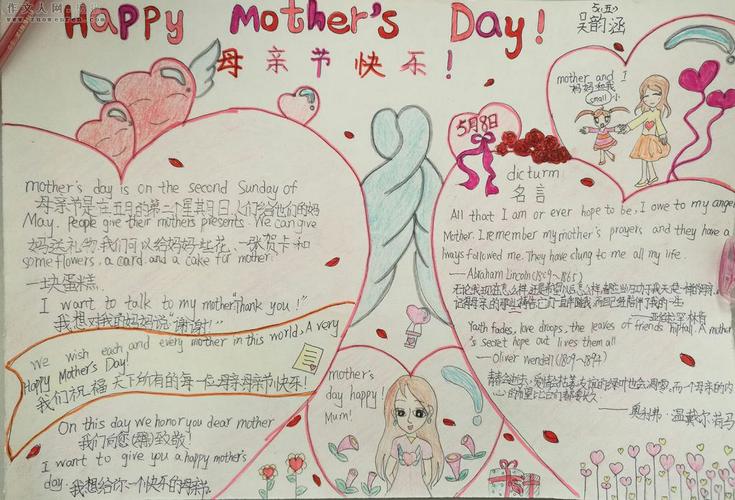 作文人网
Happy Mother's Day!
母亲节快乐!
五(五)
吴韵涵
mother and I
妈妈和我
small 小
5月8日
mother's day is on the second Sunday of
母亲节是在五月的第二个星期日人们给他们的妈
May. People give their mothers presents. We can give
妈送礼物我们可以给妈妈红花、一张贺卡和
some flowers, a card and a cake for mother.
一块蛋糕.
I want to talk to my mother "Thank you!"
我想对我的妈妈说"谢谢!"
We wish each and every mother in this world, A very
Happy Mother's Day!
我们祝福天下所有的每一位母亲母亲节快乐!
On this day we honor you dear mother
我们向您致敬!
I want to give you a happy mother's
day. 我想给你一个快乐的母亲节
mother's
day happy!
Mum!
dicturm
名言
All that I am or ever hope to be, I owe to my angel
Mother. I remember my mother's prayers and they have a
lways followed me. They have clung to me all my life.
——Abraham Lincoln (1809~1865)
——亚伯拉罕·林肯
Youth fades, love drops, the leaves of friends hip fall. A mother
's secret hope out lives them all
——Oliver wendell (1809~1894)
青春会逝去,爱情会枯萎友谊的绿叶也会凋零,而一个母亲的内
心的希望比它们都要长久
——奥利弗·温戴尔·荷马